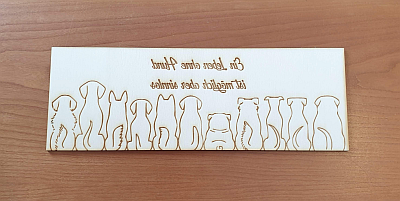 Ein Leben ohne Hund
ist möglich aber sinnlos